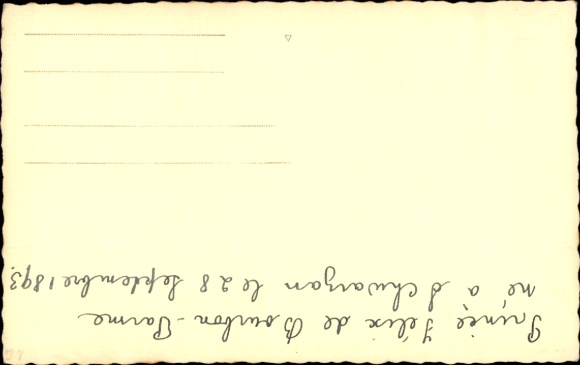 Prince Félix de Bourbon-Parme
né à Schwarzan le 28 septembre 1893.